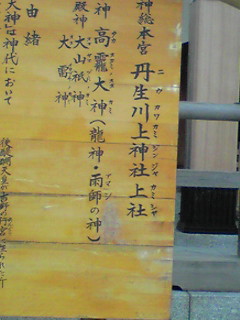 神総本宮 丹生川上神社上社
ニ ウ カワ カミ ジン ジャ カミ シャ
神 高龗大神(龍神・雨師の神)
殿神 大山祇神
大雷神
由緒
大神」は神代において